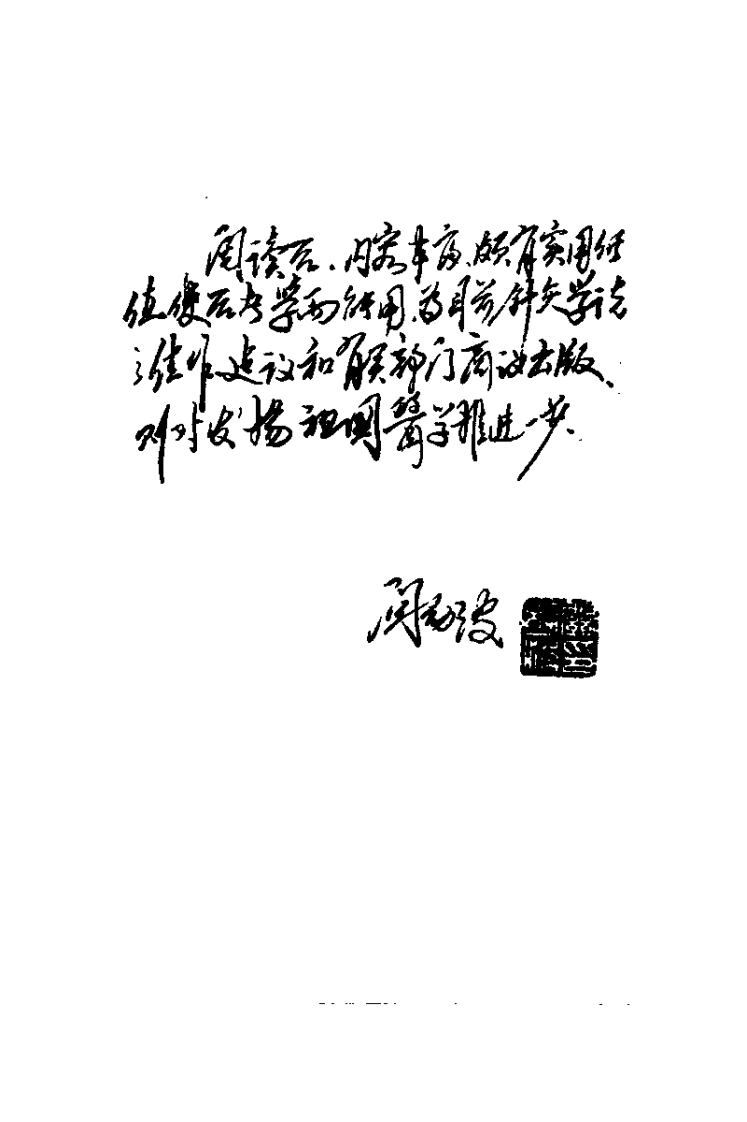 阅读后、内容丰富、颇有实用价
值使后者学而能用、为目前针灸学
之佳作建议和有关部门商议出版、
则对发扬祖国医学推进一步.